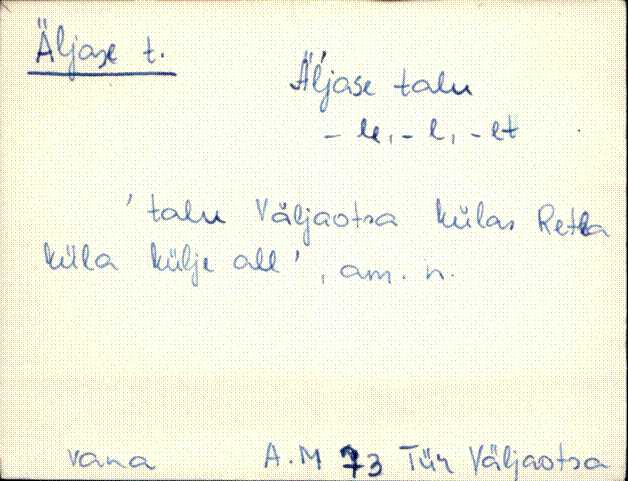 Äljase t.
Äljase talu
- le, - l, - lt
'talu Väljaotsa külas Retla
küla külje all', am. n.
vana A.M 73 Tür Väljaotsa